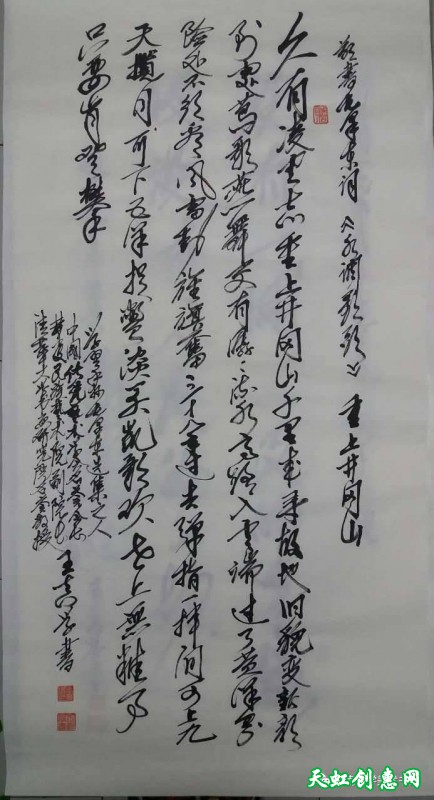 敬书毛泽东词《水调歌头》重上井冈山
久有凌云志重上井冈山千里来寻故地旧貌变新颜
到处莺歌燕舞更有潺潺流水高路入云端过了黄洋界
险处不须看风雷动旌旗奋三十八年过去弹指一挥间可上九
天揽月可下五洋捉鳖谈笑凯歌欢世上无难事
只要肯登攀
毛泽东选集之人
中国传统艺术
术院副院长
教授
书
天虹创惠网